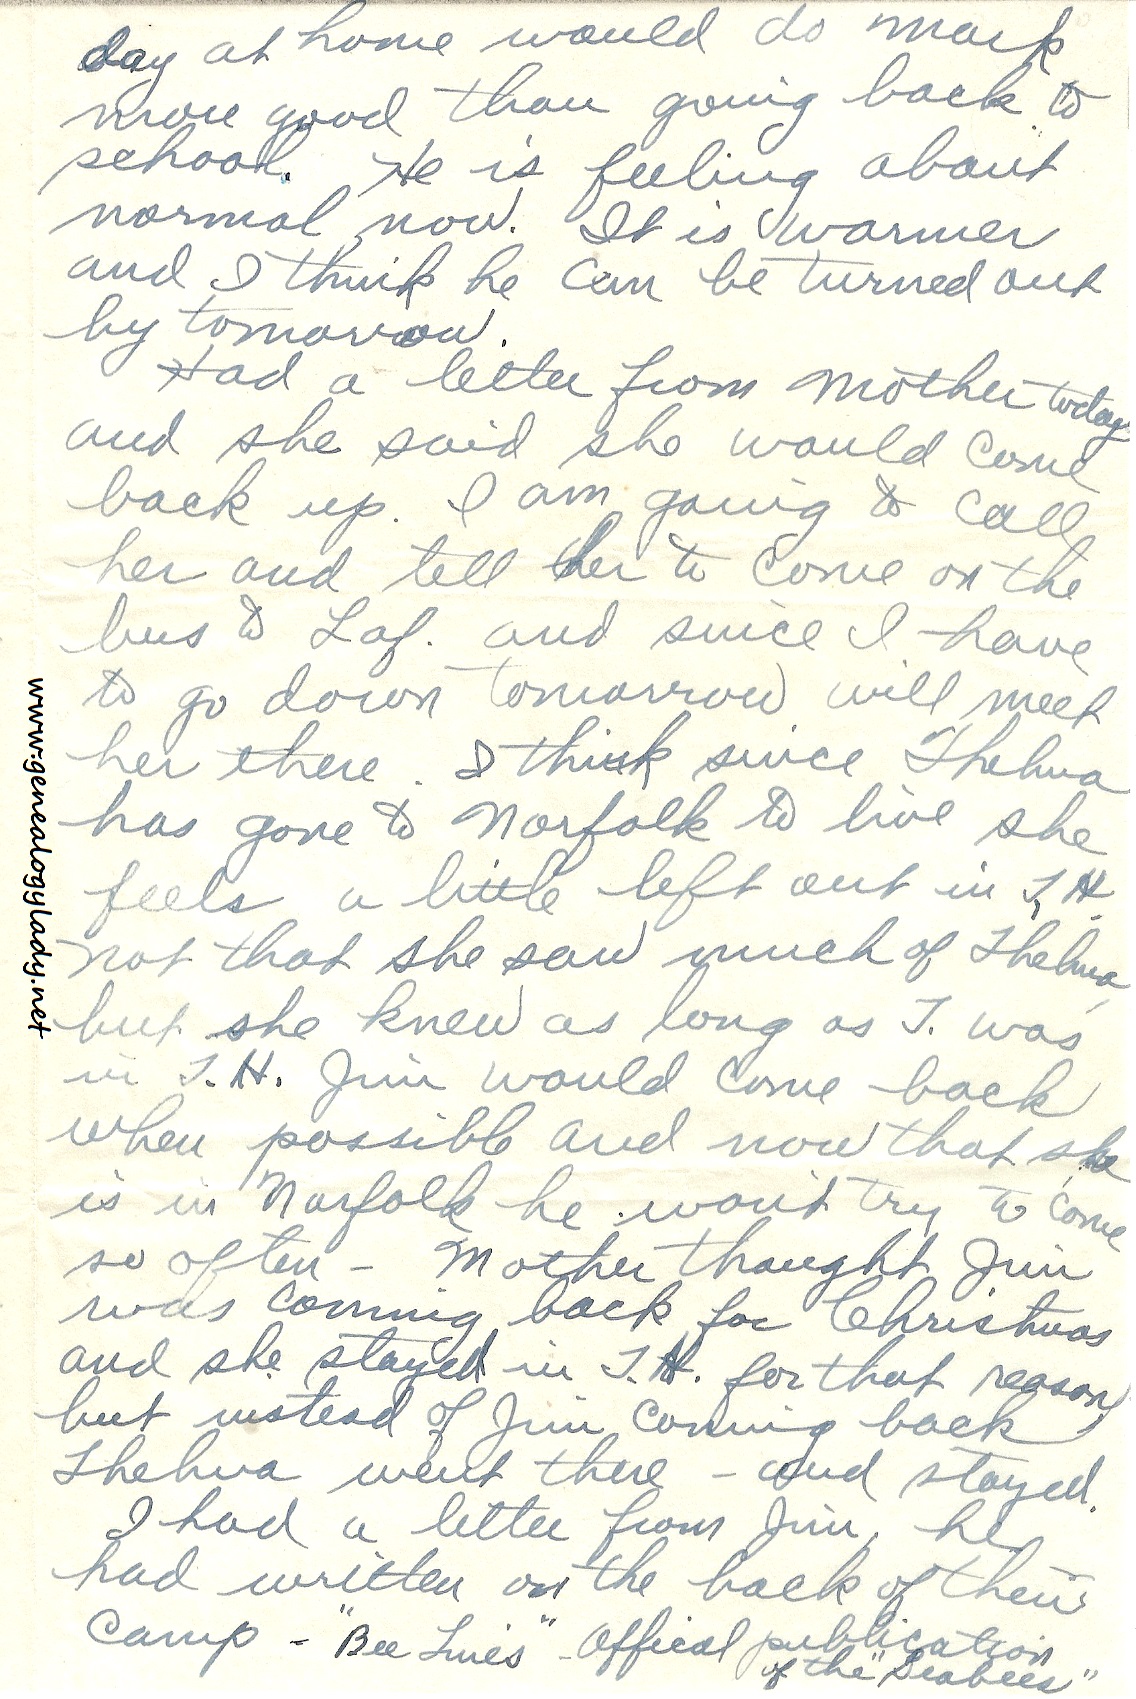 day at home would do Mark
more good than going back to
school. He is feeling about
normal now. It is warmer
and I think he can be turned out
by tomorrow.
Had a letter from Mother today
and she said she would come
back up. I am going to call
her and tell her to come on the
bus to Laf. and since I have
to go down tomorrow will meet
her there. I think since Thelma
has gone to Norfolk to live she
feels a little left out in T.H.
Not that she saw much of Thelma,
but she knew as long as T. was
in T.H. Jim would come back
when possible and now that she
is in Norfolk he won't try to come
so often - Mother thought Jim
was coming back for Christmas
and she stayed in T.H. for that reason,
but instead of Jim coming back
Thelma went there - and stayed.
I had a letter from Jim, he
had written on the back of their
Camp - "Bee Lines" - Offical publication
of the "Seabees"
www.genealogylady.net